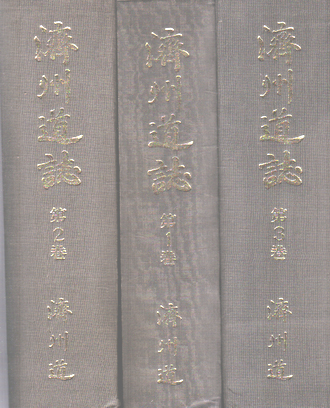 濟州道誌
第2巻
濟州道
濟州道誌
第1巻
濟州道
濟州道誌
第3巻
濟州道